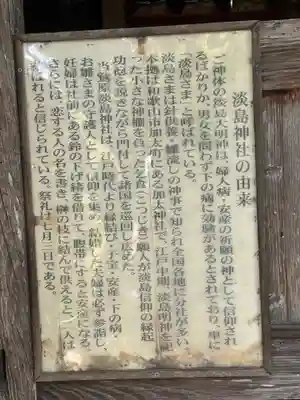 淡島神社の由来
ご神体の淡島大明神は、婦人病・安産の祈願の神として信仰され
るばかりか、男女を問わず下の病に効験があるとされており、単に
「淡島さま」と呼ばれている。
淡島さまは針供養・雛流しの神事で知られ全国各地に分社が多い。
本拠は和歌山市加太町である加太神社で、江戸中期、淡島明神を祀
った小さな神棚を負った乞食(こつじき)願人が淡島信仰の縁起
功徳を説きながら門付して諸国を巡回し広めた。
当鷺原淡島神社は、江戸時代より縁結び・子宝・安産・下の病・
お雛さまの守護人として信仰を集め、結婚した夫婦は必ず参詣し、
妊婦は社前にある鈴の下げ緒を借りて、腹帯にすると安産になる。
さらには、恋する人の名を書き、榊の枝に結んで供えると、二人は
結ばれると信じられている。祭礼は七月三日である。